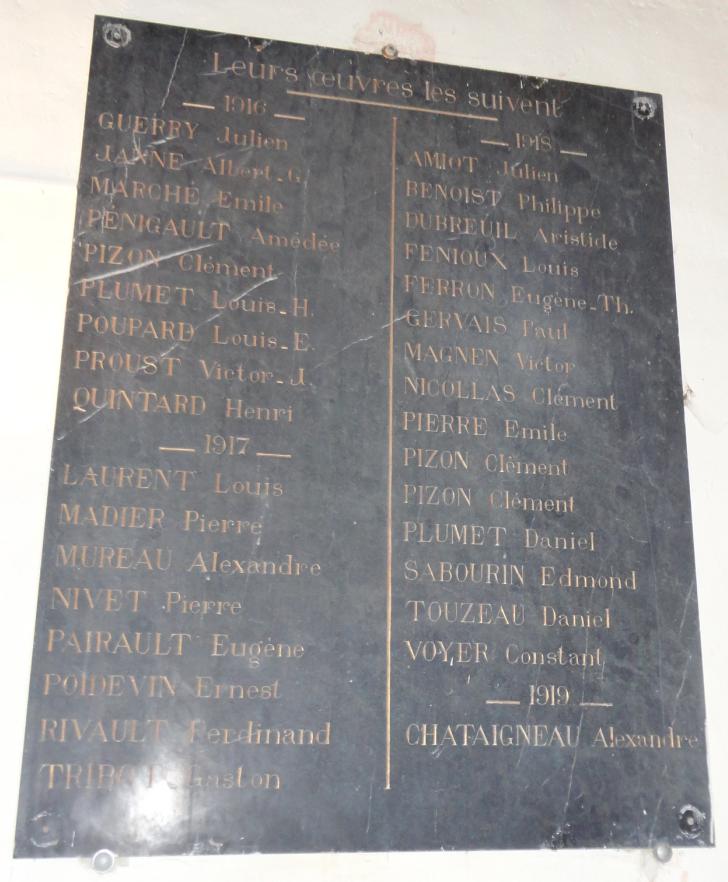 Leurs œuvres les suivent
— 1916 —
GUERRY Julien
JANNE Albert-G.
MARCHÉ Emile
PÉNIGAULT Amédée
PIZON Clément
PLUMET Louis-H.
POUPARD Louis-E.
PROUST Victor-J.
QUINTARD Henri
— 1917 —
LAURENT Louis
MADIER Pierre
MUREAU Alexandre
NIVET Pierre
PAIRAULT Eugène
POIDEVIN Ernest
RIVAULT Ferdinand
Gaston
— 1918 —
AMIOT Julien
BENOIST Philippe
DUBREUIL Aristide
FENIOUX Louis
FERRON Eugène-Th.
GERVAIS Paul
MAGNEN Victor
NICOLLAS Clément
PIERRE Emile
PIZON Clément
PIZON Clément
PLUMET Daniel
SABOURIN Edmond
TOUZEAU Daniel
VOYER Constant
— 1919 —
CHATAIGNEAU Alexandre